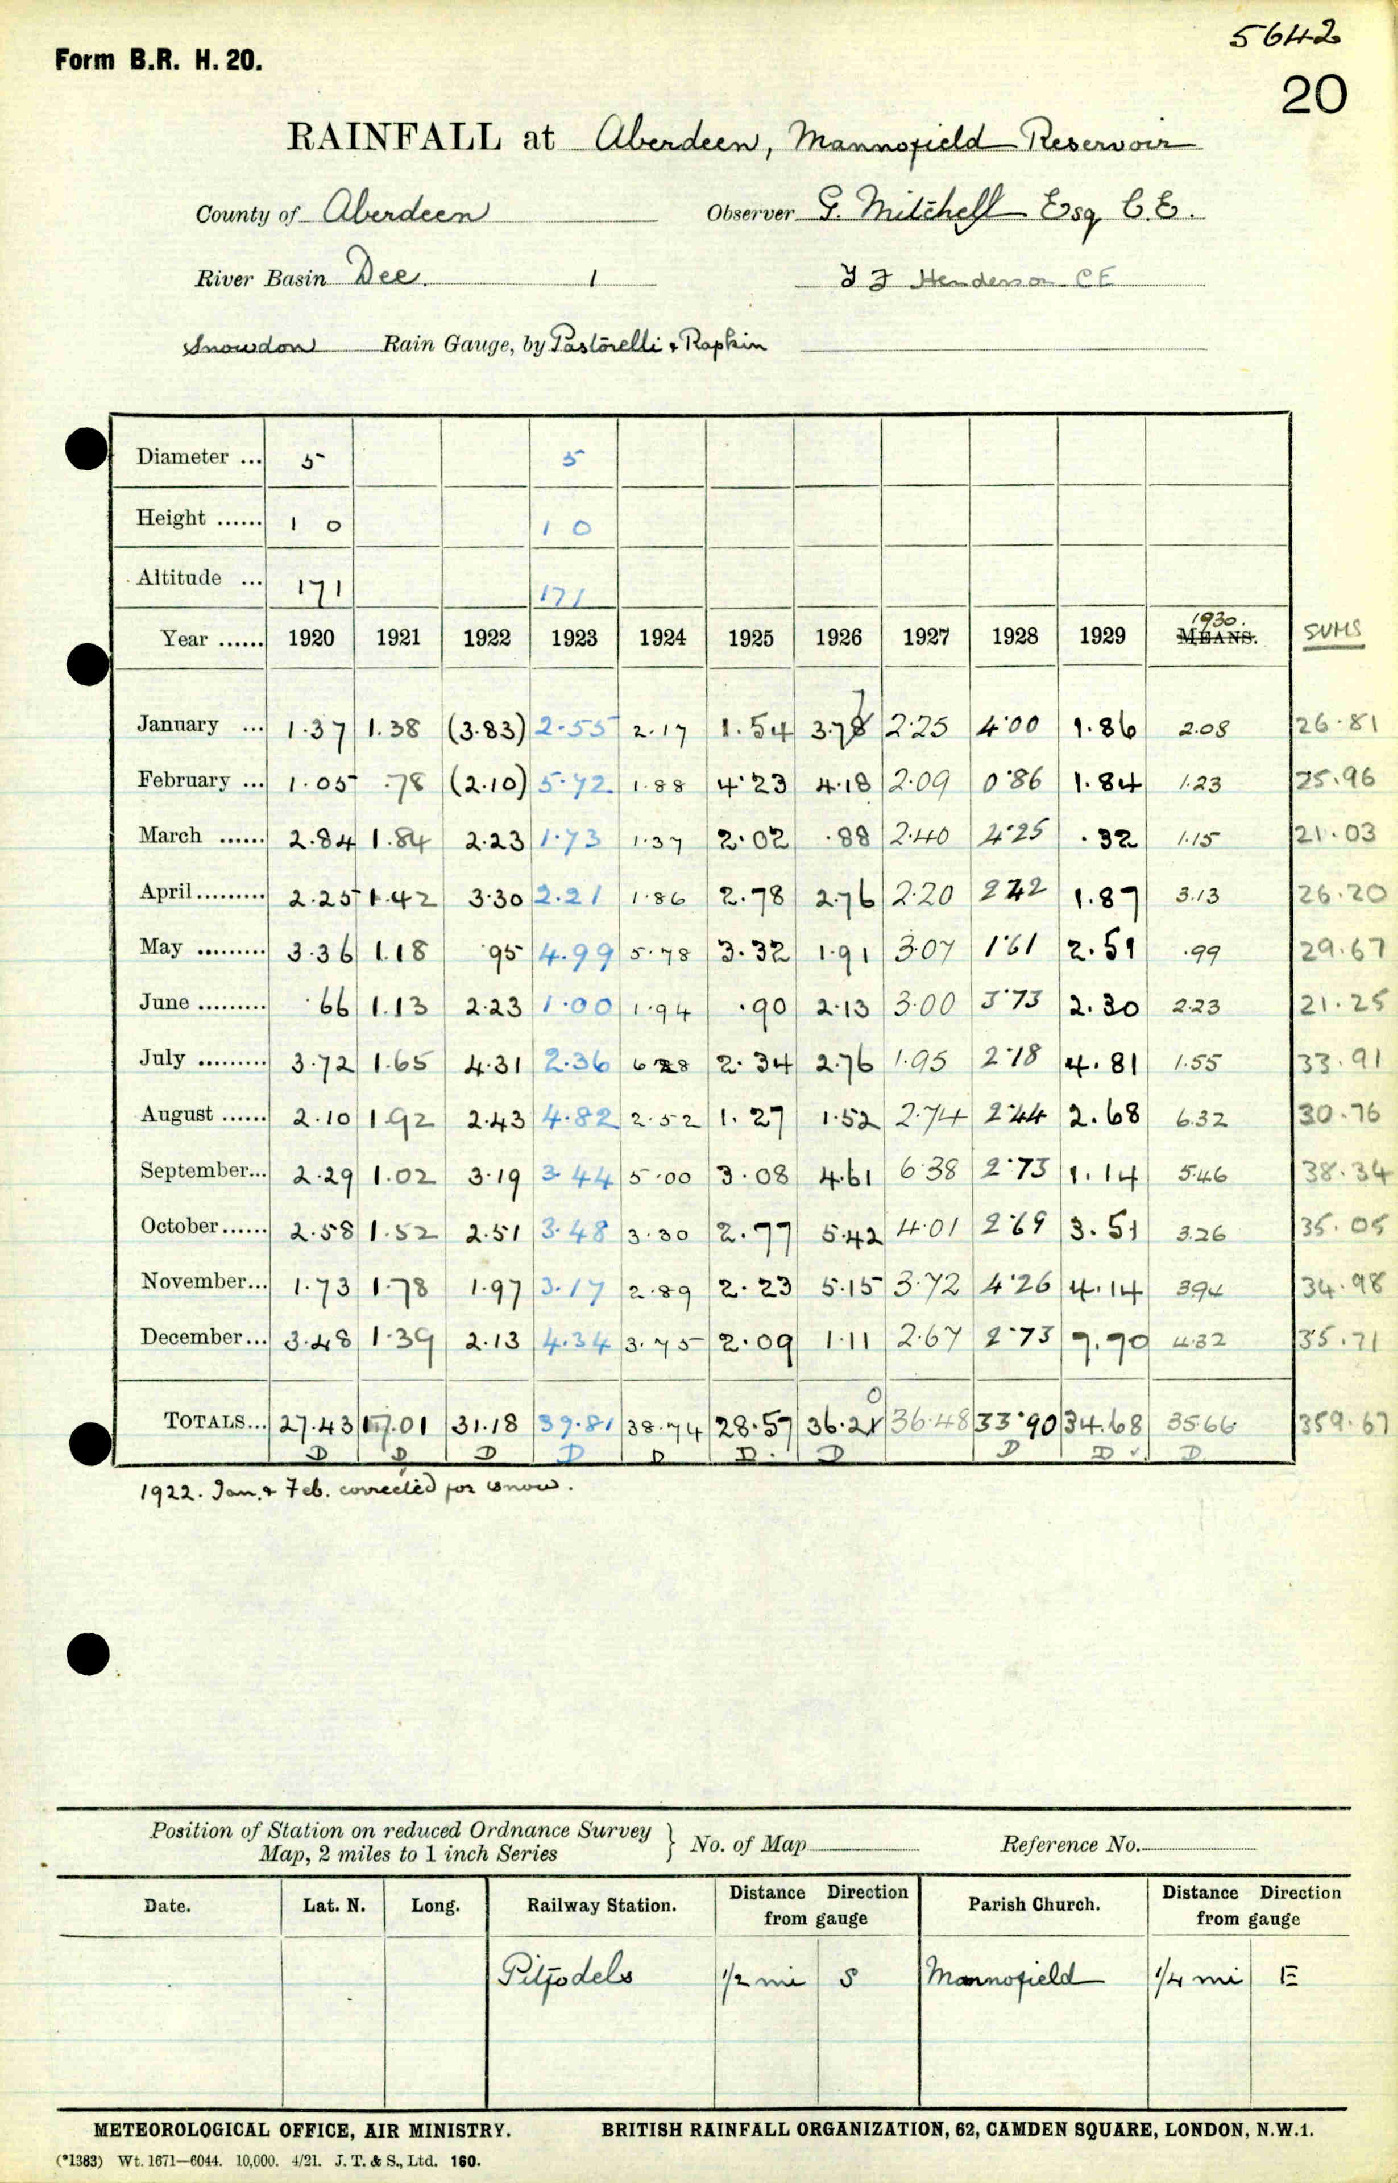 5642
Form B.R. H. 20.
20
RAINFALL at Aberdeen, Mannofield Reservoir
County of Aberdeen Observer G. Mitchell Esq C.E.
River Basin Dee. 1 Henderson CE
Snowdon Rain Gauge, by Pastorelli & Rapkin
Diameter ... 5 5
Height ...... 1 0 1 0
Altitude ... 171 171
1930.
Year ...... 1920 1921 1922 1923 1924 1925 1926 1927 1928 1929 MEANS. SUMS
January ... 1.37 1.38 (3.83) 2.55 2.17 1.54 3.77 2.25 4.00 1.86 2.08 26.81
February ... 1.05 .78 (2.10) 5.72 1.88 4.23 4.18 2.09 0.86 1.84 1.23 25.96
March ...... 2.84 1.84 2.23 1.73 1.37 2.02 .88 2.40 4.25 .32 1.15 21.03
April......... 2.25 1.42 3.30 2.21 1.86 2.78 2.76 2.20 2.42 1.87 3.13 26.20
May ......... 3.36 1.18 .95 4.99 5.78 3.32 1.91 3.07 1.61 2.51 .99 29.67
June ......... .66 1.13 2.23 1.00 1.94 .90 2.13 3.00 3.73 2.30 2.23 21.25
July ......... 3.72 1.65 4.31 2.36 6.28 2.34 2.76 1.95 2.18 4.81 1.55 33.91
August ...... 2.10 1.92 2.43 4.82 2.52 1.27 1.52 2.74 2.44 2.68 6.32 30.76
September... 2.29 1.02 3.19 3.44 5.00 3.08 4.61 6.38 2.73 1.14 5.46 38.34
October...... 2.58 1.52 2.51 3.48 3.30 2.77 5.42 4.01 2.69 3.51 3.26 35.05
November... 1.73 1.78 1.97 3.17 2.89 2.23 5.15 3.72 4.26 4.14 3.94 34.98
December... 3.48 1.39 2.13 4.34 3.75 2.09 1.11 2.67 2.73 7.70 4.32 35.71
TOTALS... 27.43 17.01 31.18 39.81 38.74 28.57 36.20 36.48 33.90 34.68 35.66 359.67
D D D D D D. D D D ✓. D
1922. Jan. & Feb. corrected for snow.
Position of Station on reduced Ordnance Survey
Map, 2 miles to 1 inch Series } No. of Map Reference No.
Date. Lat. N. Long. Railway Station. Distance Direction from gauge Parish Church. Distance Direction from gauge
Pitfodels 1/2 mi S Mannofield 1/4 mi E
METEOROLOGICAL OFFICE, AIR MINISTRY. BRITISH RAINFALL ORGANIZATION, 62, CAMDEN SQUARE, LONDON, N.W.1.
(*1383) Wt. 1671—6044. 10,000. 4/21. J. T. & S., Ltd. 160.